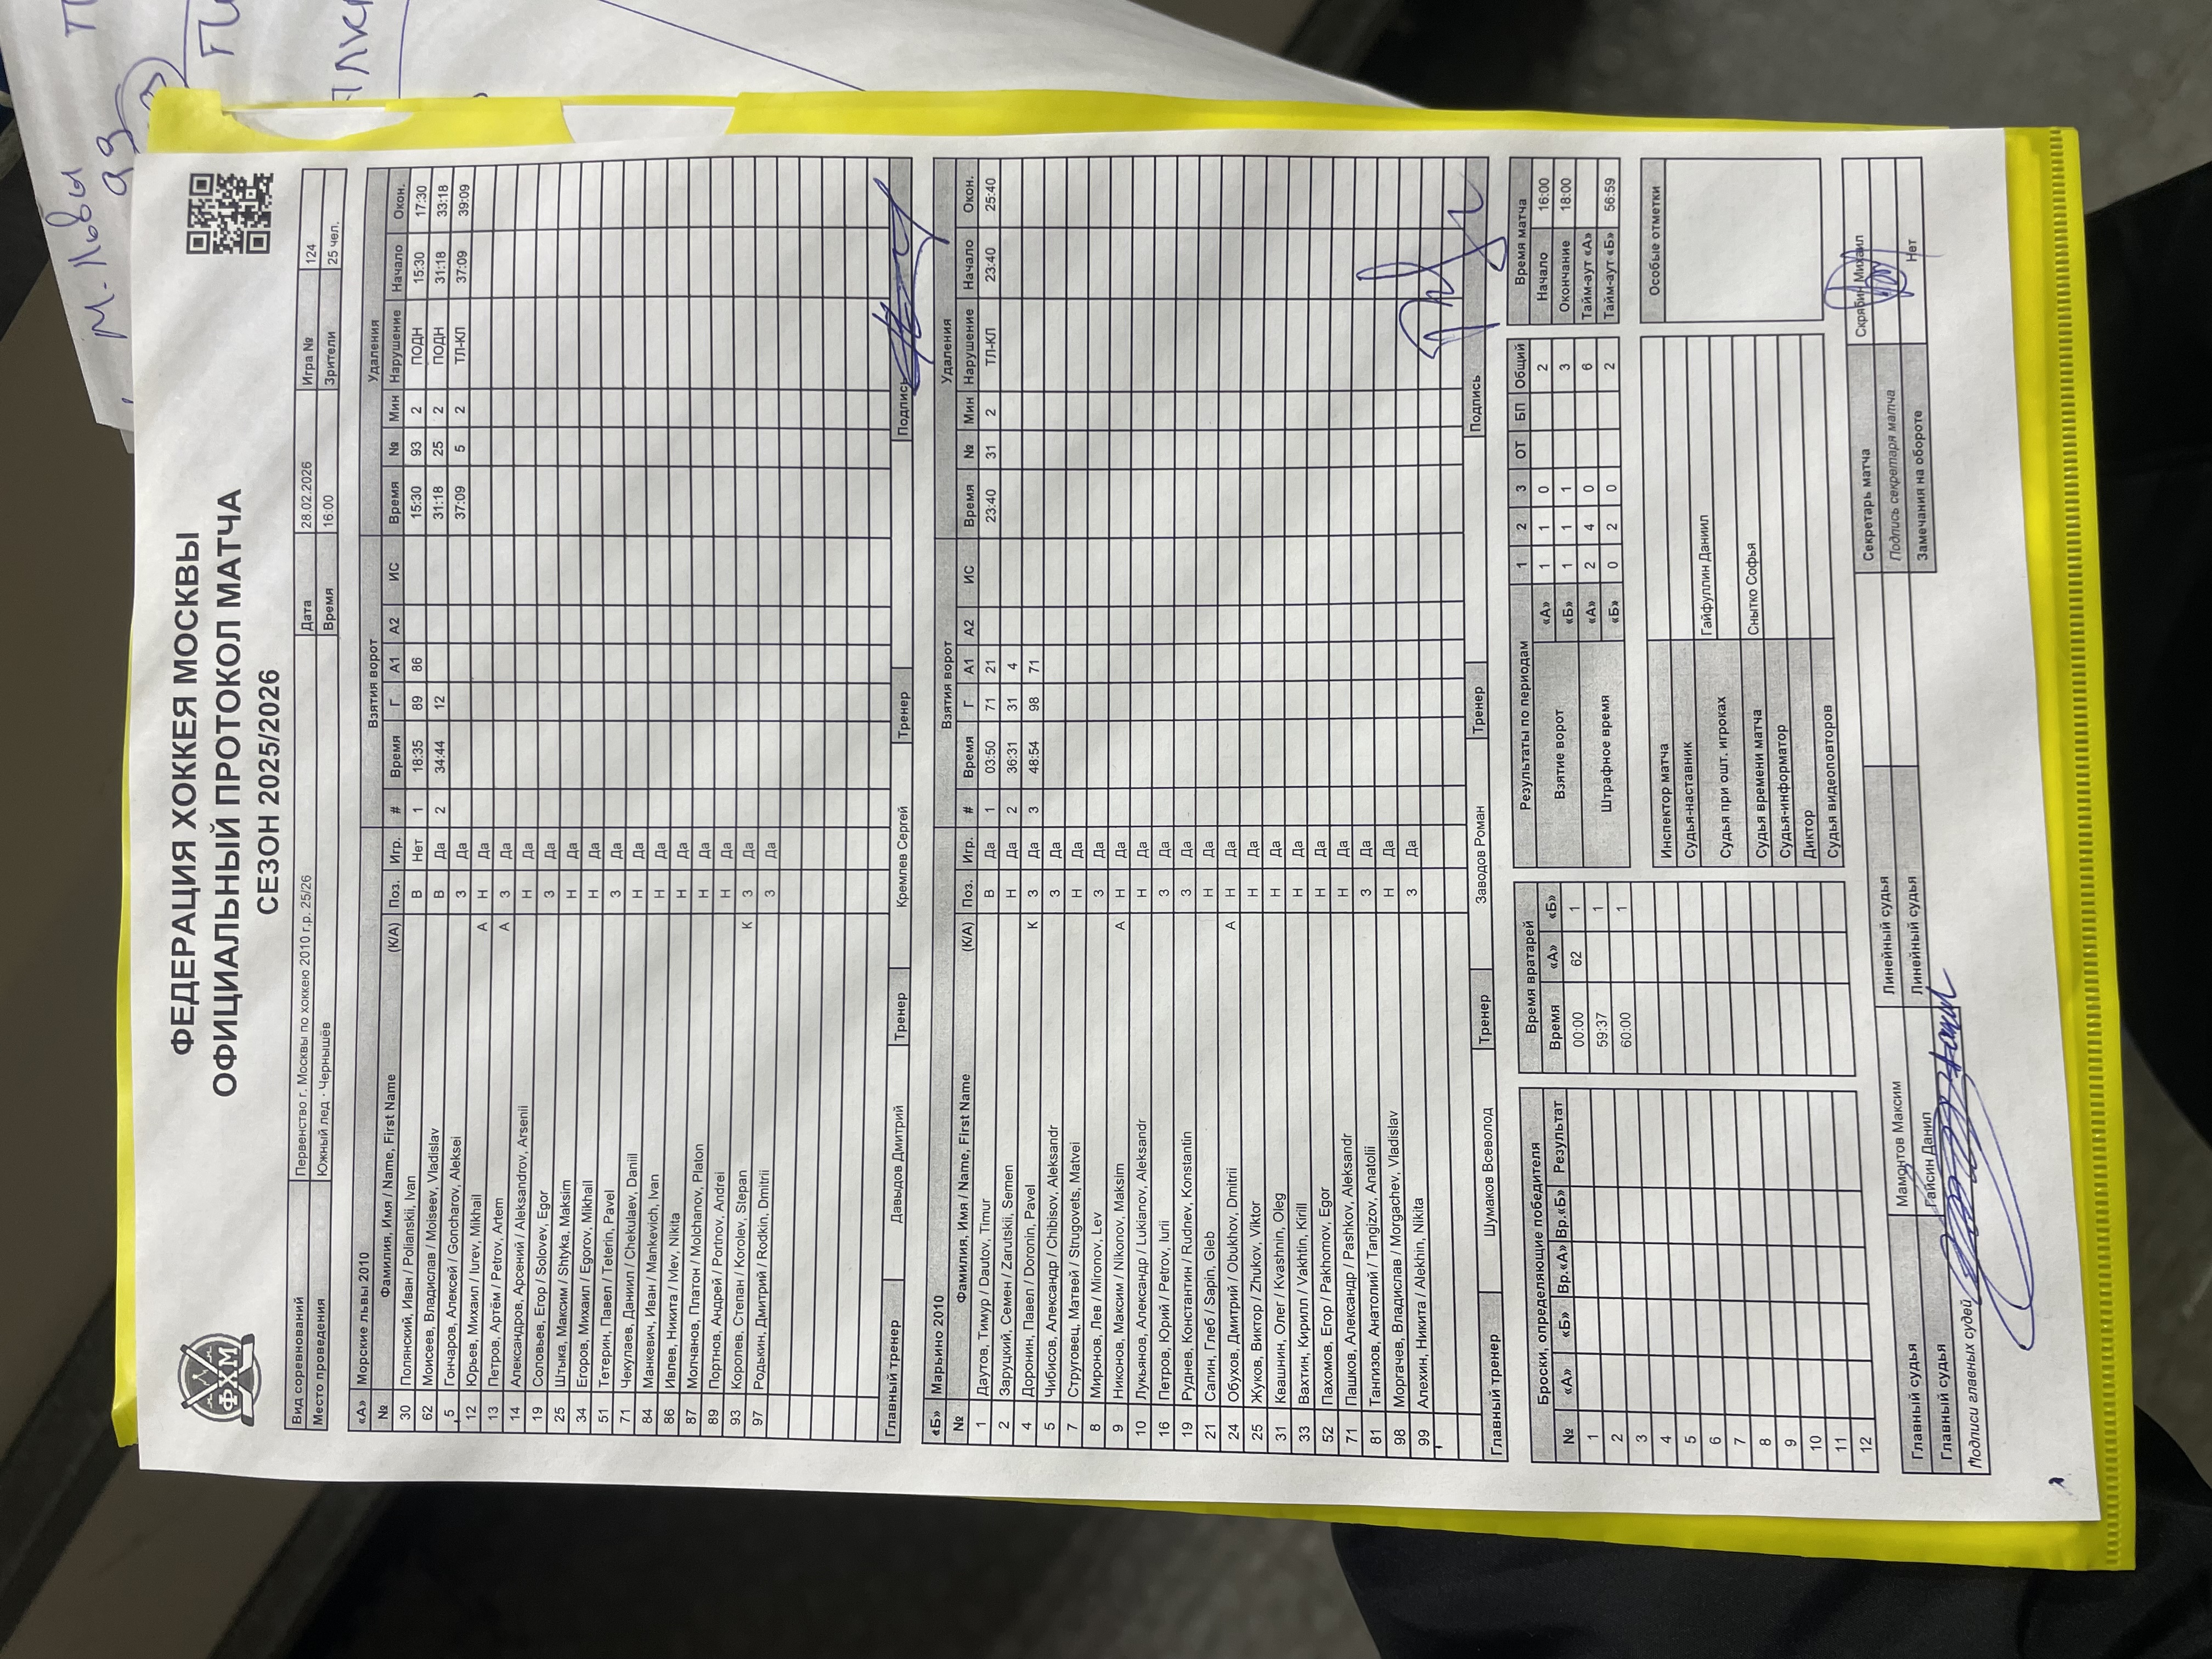 М. Львы
93
ФХМ
ФЕДЕРАЦИЯ ХОККЕЯ МОСКВЫ
ОФИЦИАЛЬНЫЙ ПРОТОКОЛ МАТЧА
СЕЗОН 2025/2026
Вид соревнований Первенство г. Москвы по хоккею 2010 г.р. 25/26 Дата 28.02.2026 Игра № 124
Место проведения Южный лед - Чернышёв Время 16:00 Зрители 25 чел.
«А» Морские львы 2010 Взятия ворот Удаления
№ Фамилия, Имя / Name, First Name (К/А) Поз. Игр. # Время Г А1 А2 ИС Время № Мин Нарушение Начало Окон.
30 Полянский, Иван / Polianskii, Ivan В Нет 1 18:35 89 86 15:30 93 2 ПОДН 15:30 17:30
62 Моисеев, Владислав / Moiseev, Vladislav В Да 2 34:44 12 31:18 25 2 ПОДН 31:18 33:18
5 Гончаров, Алексей / Goncharov, Aleksei З Да 37:09 5 2 ТЛ-КЛ 37:09 39:09
12 Юрьев, Михаил / Iurev, Mikhail А Н Да
13 Петров, Артём / Petrov, Artem А З Да
14 Александров, Арсений / Aleksandrov, Arsenii Н Да
19 Соловьев, Егор / Solovev, Egor З Да
25 Штыка, Максим / Shtyka, Maksim Н Да
34 Егоров, Михаил / Egorov, Mikhail Н Да
51 Тетерин, Павел / Teterin, Pavel З Да
71 Чекулаев, Даниил / Chekulaev, Daniil Н Да
84 Манкевич, Иван / Mankevich, Ivan Н Да
86 Ивлев, Никита / Ivlev, Nikita Н Да
87 Молчанов, Платон / Molchanov, Platon Н Да
89 Портнов, Андрей / Portnov, Andrei Н Да
93 Королев, Степан / Korolev, Stepan К З Да
97 Родькин, Дмитрий / Rodkin, Dmitrii З Да
Главный тренер Давыдов Дмитрий Тренер Кремлев Сергей Тренер Подпись
«Б» Марьино 2010 Взятия ворот Удаления
№ Фамилия, Имя / Name, First Name (К/А) Поз. Игр. # Время Г А1 А2 ИС Время № Мин Нарушение Начало Окон.
1 Даутов, Тимур / Dautov, Timur В Да 1 03:50 71 21 23:40 31 2 ТЛ-КЛ 23:40 25:40
2 Заруцкий, Семен / Zarutskii, Semen Н Да 2 36:31 31 4
4 Доронин, Павел / Doronin, Pavel К З Да 3 48:54 98 71
5 Чибисов, Александр / Chibisov, Aleksandr З Да
7 Струговец, Матвей / Strugovets, Matvei Н Да
8 Миронов, Лев / Mironov, Lev З Да
9 Никонов, Максим / Nikonov, Maksim А Н Да
10 Лукьянов, Александр / Lukianov, Aleksandr Н Да
16 Петров, Юрий / Petrov, Iurii З Да
19 Руднев, Константин / Rudnev, Konstantin З Да
21 Сапин, Глеб / Sapin, Gleb Н Да
24 Обухов, Дмитрий / Obukhov, Dmitrii А Н Да
25 Жуков, Виктор / Zhukov, Viktor Н Да
31 Квашнин, Олег / Kvashnin, Oleg Н Да
33 Вахтин, Кирилл / Vakhtin, Kirill Н Да
52 Пахомов, Егор / Pakhomov, Egor Н Да
71 Пашков, Александр / Pashkov, Aleksandr Н Да
81 Тангизов, Анатолий / Tangizov, Anatolii З Да
98 Моргачев, Владислав / Morgachev, Vladislav Н Да
99 Алехин, Никита / Alekhin, Nikita З Да
Главный тренер Шумаков Всеволод Тренер Заводов Роман Тренер Подпись
Броски, определяющие победителя
№ «А» «Б» Вр.«А» Вр.«Б» Результат
1
2
3
4
5
6
7
8
9
10
11
12
Время вратарей
Время «А» «Б»
00:00 62 1
59:37 1
60:00 1
Результаты по периодам 1 2 3 ОТ БП Общий
Взятие ворот «А» 1 1 0 2
«Б» 1 1 1 3
Штрафное время «А» 2 4 0 6
«Б» 0 2 0 2
Время матча
Начало 16:00
Окончание 18:00
Тайм-аут «А»
Тайм-аут «Б» 56:59
Инспектор матча
Судья-наставник
Судья при ошт. игроках Гайфуллин Даниил
Судья времени матча Снытко Софья
Судья-информатор
Диктор
Судья видеоповторов
Особые отметки
Главный судья Мамонтов Максим Линейный судья Секретарь матча Скрябин Михаил
Главный судья Гайсин Данил Линейный судья Подпись секретаря матча
Подписи главных судей Замечания на обороте Нет